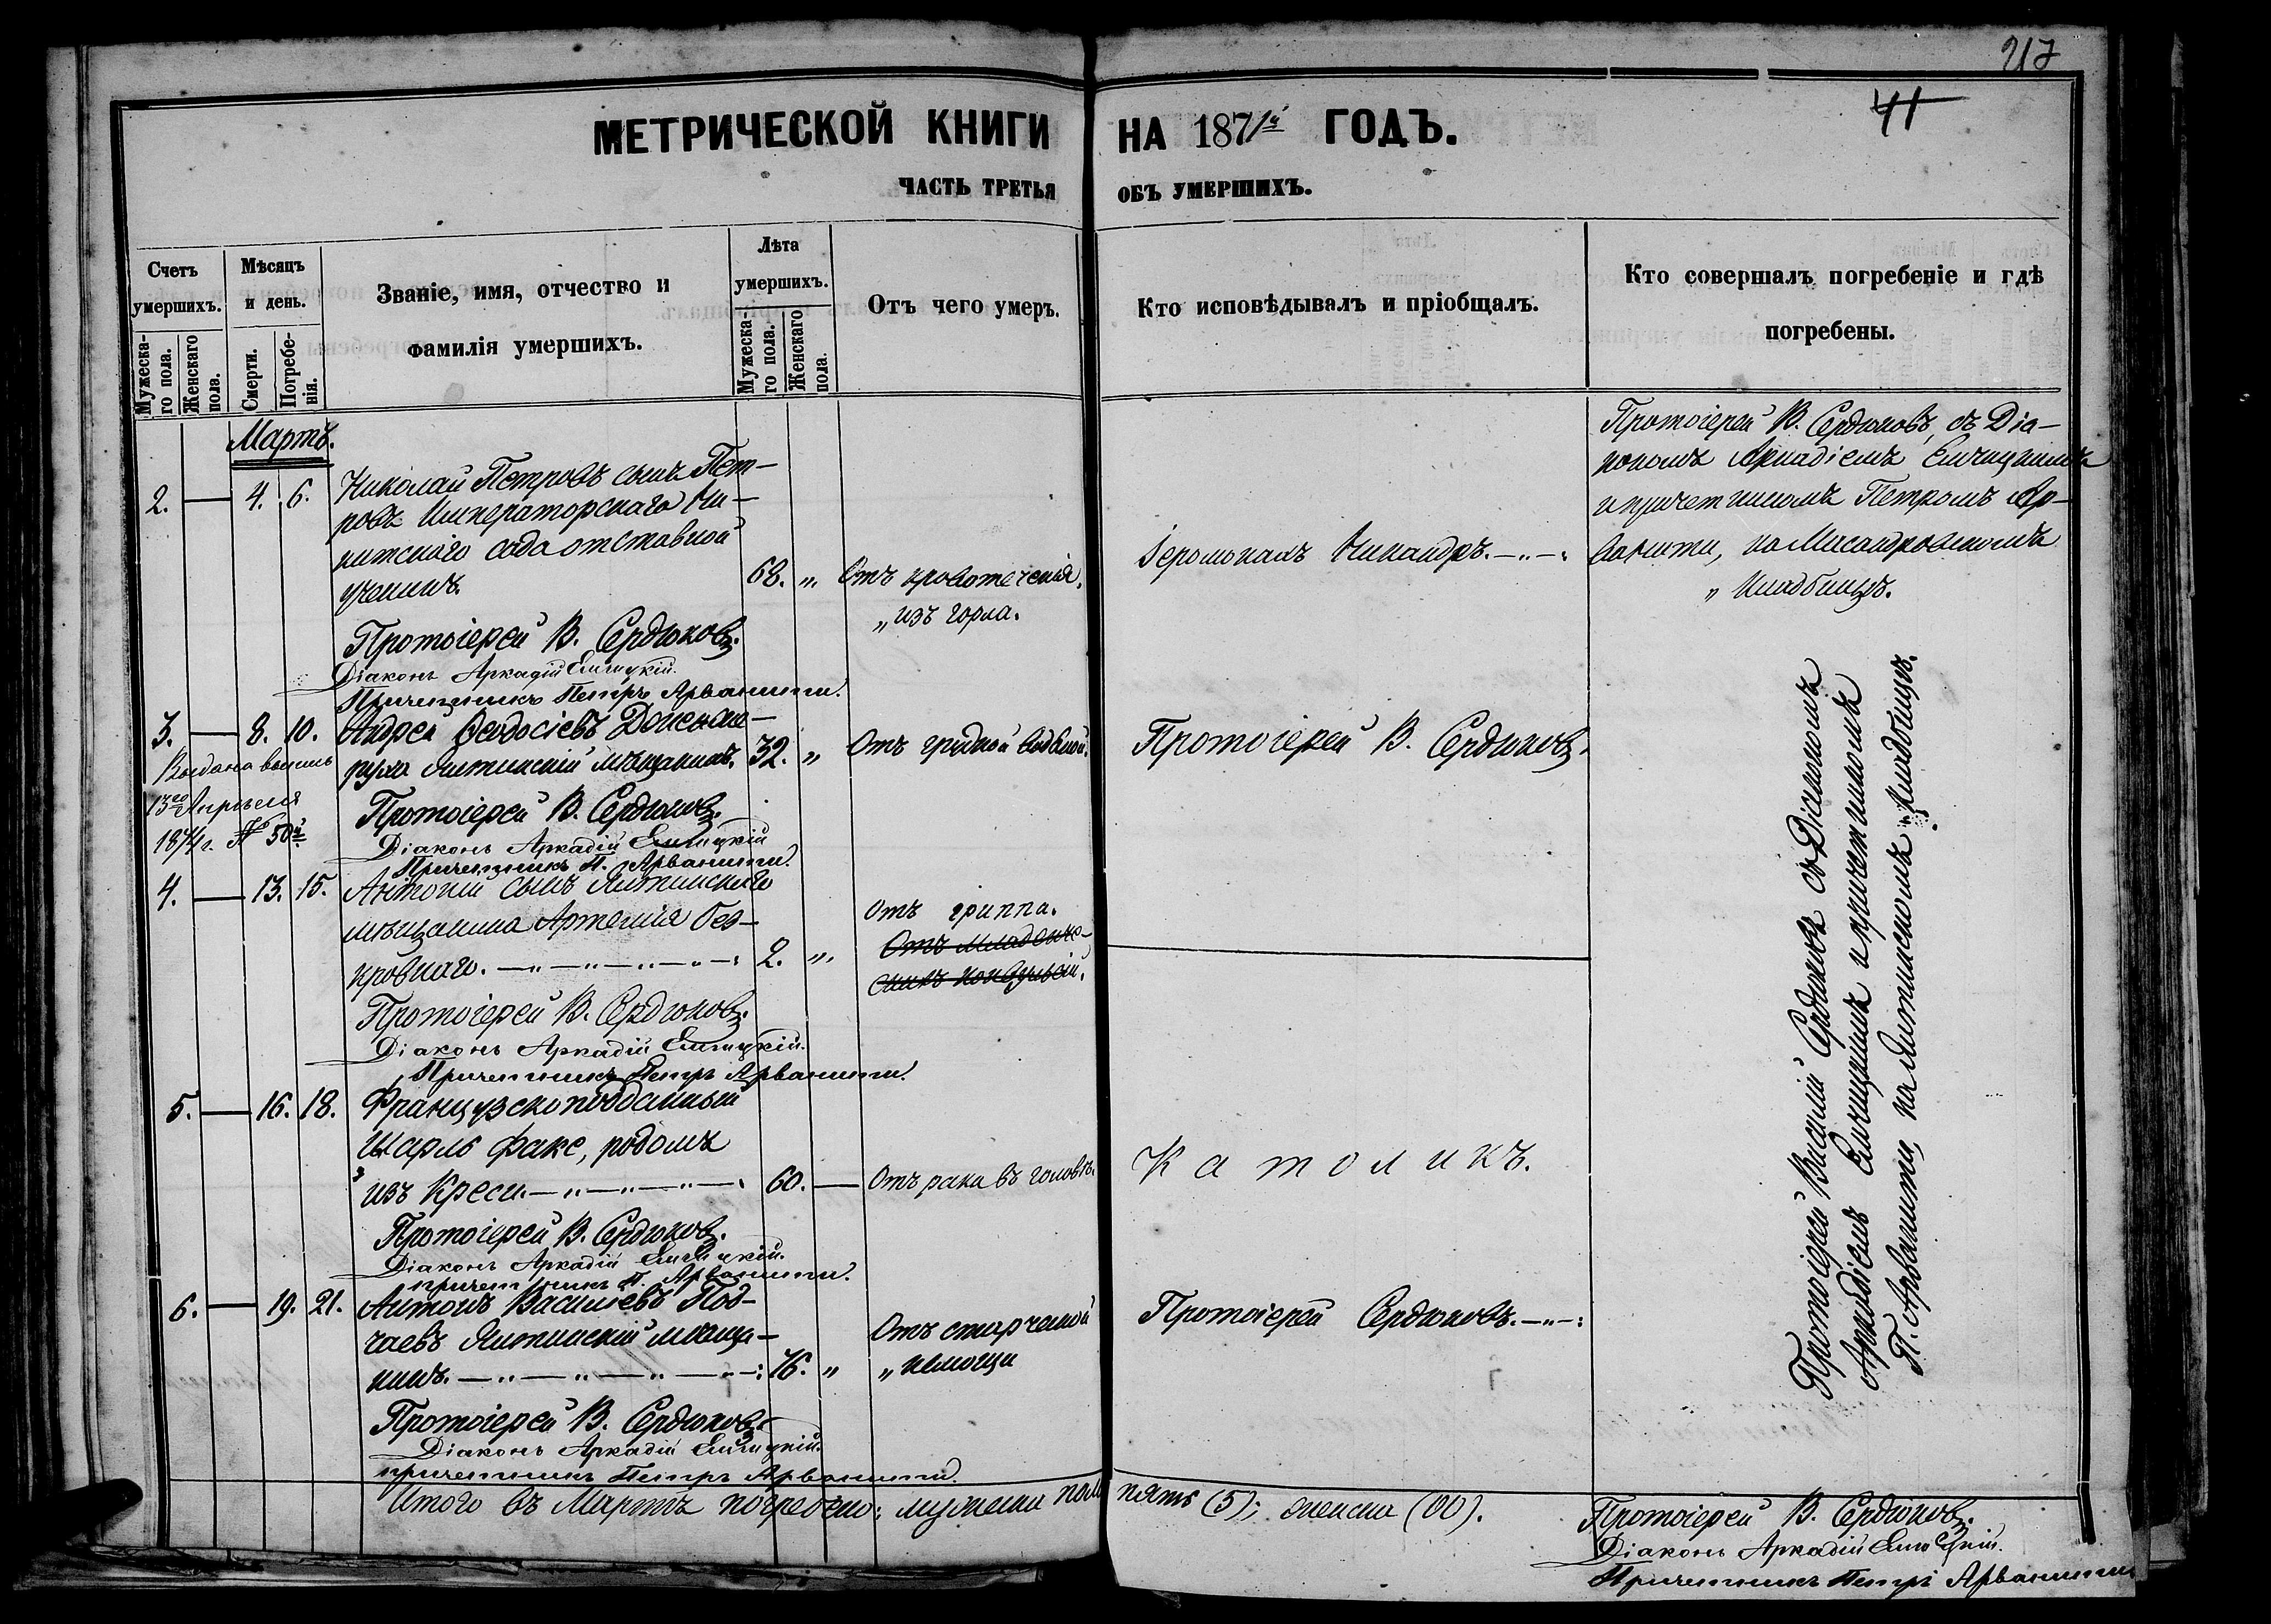 217
41
МЕТРИЧЕСКОЙ КНИГИ НА 1871й ГОДЪ.
ЧАСТЬ ТРЕТЬЯ ОБЪ УМЕРШИХЪ.
Счетъ умершихъ.
Мужеска-го пола.
Женскаго пола.
Мѣсяцъ и день.
Смерти.
Погребе-нія.
Званіе, имя, отчество и фамилія умершихъ.
Лѣта умершихъ.
Мужеска-го пола.
Женскаго пола.
Отъ чего умеръ.
Кто исповѣдывалъ и пріобщалъ.
Кто совершалъ погребеніе и гдѣ погребены.
Мартъ.
2. — 4. 6. Николай Петровъ сынъ Пет-
ровъ Императорскаго Ни-
китскаго сада отставной
ученикъ. 68. „ Отъ кровотеченія,
„ изъ горла.
Іеромонахъ Никандръ.
Протоіерей В. Сердюковъ, съ Діа-
кономъ Аркадіемъ
и причетникомъ Петромъ Ар-
ванити, на Масандровскомъ
„ кладбищѣ.
Протоіерей В. Сердюковъ.
Діаконъ Аркадій
Причетникъ Петръ Арванити.
3. — 8. 10. Андрей Ѳеодосіевъ
Ялтинскій мѣщанинъ. 32. „ Отъ грудной водяной.
Протоіерей В. Сердюковъ.
Выдана выпись
13го Апрѣля
1871г. № 50й
Протоіерей В. Сердюковъ.
Діаконъ Аркадій
Причетникъ П. Арванити.
4. — 13. 15. Антоній сынъ Ялтинскаго
мѣщанина Артемія Без-
кровнаго. 2. „
Отъ гриппа.
Отъ младенче-
скихъ конвульсій.
Протоіерей В. Сердюковъ.
Діаконъ Аркадій
Причетникъ Петръ Арванити.
5. — 16. 18. Французскоподданный
Шарль Факе, родомъ
изъ Креси. 60. — Отъ рака въ головѣ.
Католикъ.
Протоіерей В. Сердюковъ.
Діаконъ Аркадій
причетникъ П. Арванити.
6. — 19. 21. Антонъ Васильевъ Под-
чаевъ Ялтинскій мѣща-
нинъ. 76. „ Отъ старческой
„ немощи
Протоіерей Сердюковъ.
Протоіерей В. Сердюковъ.
Діаконъ Аркадій
причетникъ Петръ Арванити.
Протоіерей Василій Сердюковъ съ Діакономъ
Аркадіемъ и причетникомъ
П. Арванити, на Ялтинскомъ кладбищѣ.
Итого въ Мартѣ погребено: мужеска пола пять (5); женска (00).
Протоіерей В. Сердюковъ.
Діаконъ Аркадій
Причетникъ Петръ Арванити